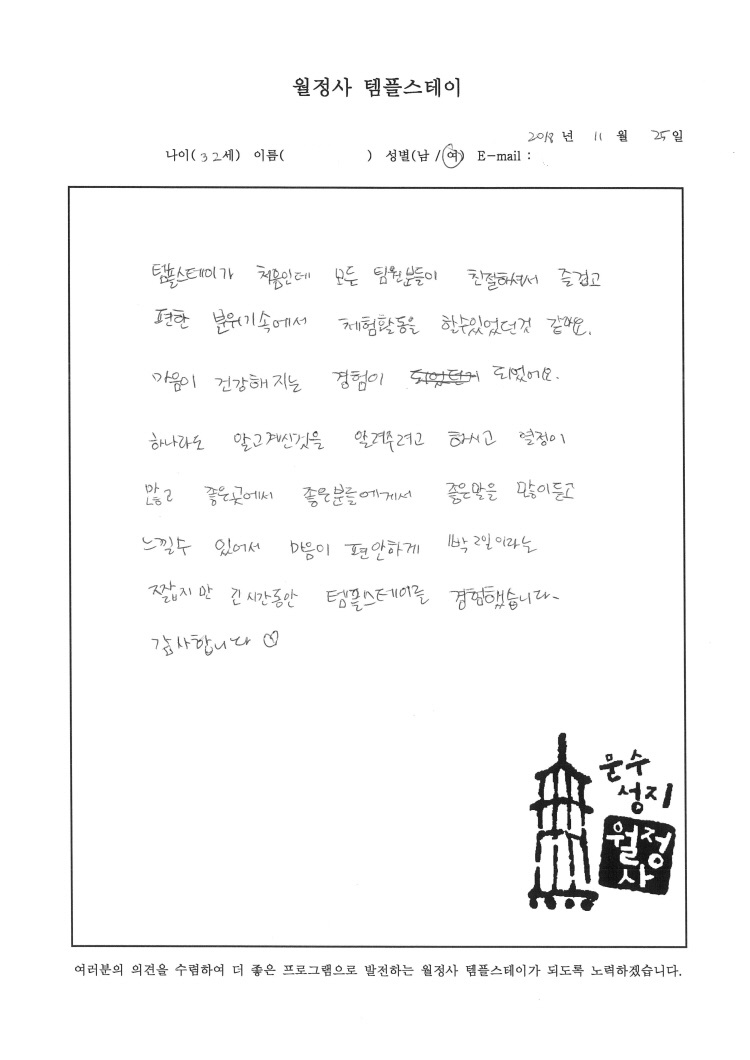 월정사 템플스테이
2018 년 11 월 25 일
나이( 32세) 이름( ) 성별(남 / 여) E-mail :
템플스테이가 처음인데 모든 팀원분들이 친절하셔서 즐겁고
편한 분위기속에서 체험활동을 할수있었던것 같아요.
마음이 건강해 지는 경험이 되었던거 되었어요.
하나라도 알고계신것을 알려주려고 하시고 열정이
많고 좋은곳에서 좋은분들에게서 좋은말을 많이듣고
느낄수 있어서 마음이 편안하게 1박 2일이라는
짧지만 긴시간동안 템플스테이를 경험했습니다~
감사합니다 ♡
문수
성지
월정
사
여러분의 의견을 수렴하여 더 좋은 프로그램으로 발전하는 월정사 템플스테이가 되도록 노력하겠습니다.